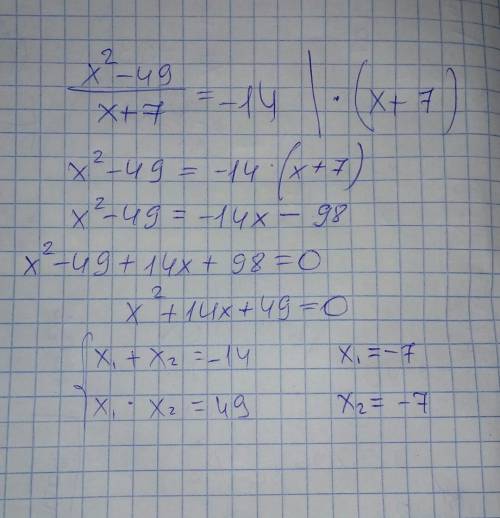 x² - 49 / x + 7 = -14 | · (x + 7)
x² - 49 = -14 · (x + 7)
x² - 49 = -14x - 98
x² - 49 + 14x + 98 = 0
x² + 14x + 49 = 0
{ x₁ + x₂ = -14 x₁ = -7
x₁ · x₂ = 49 x₂ = -7